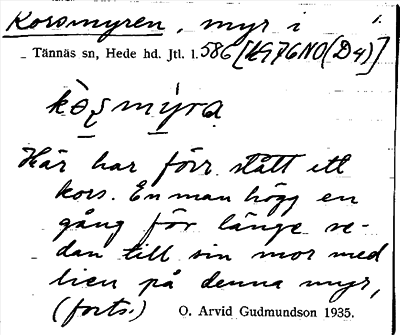 Korsmyren, myr i
Tännäs sn, Hede hd. Jtl. l. 586 [KG76NO(D4)]
Här har förr stått ett
kors. En man högg en
gång för länge se-
dan till sin mor med
lien på denna myr,
(forts.) O. Arvid Gudmundson 1935.